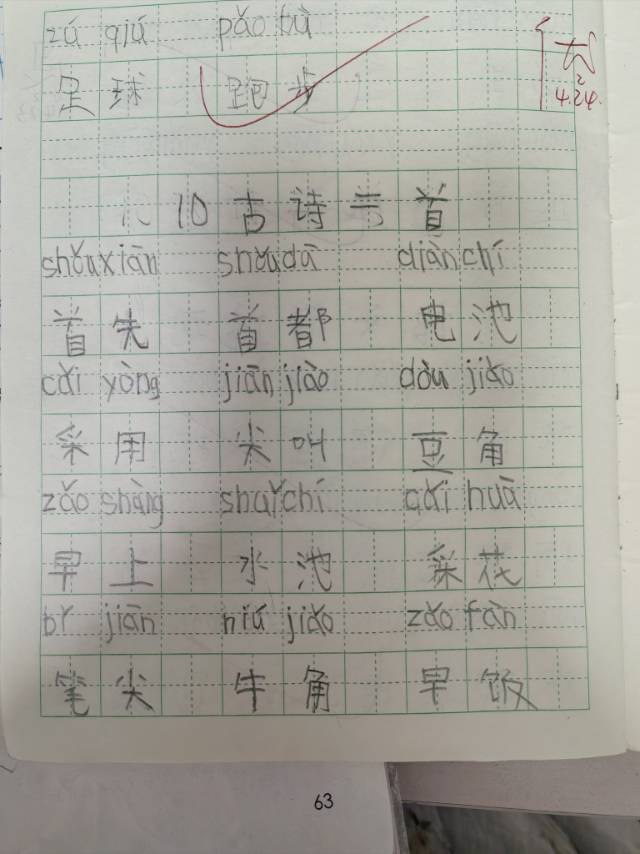 zú qiú pǎo bù
足球 跑步
大
2
4.24.
10 古诗二首
shǒuxiān shǒudū diànchí
首先 首都 电池
cǎi yòng jiānjiào dòu jiǎo
采用 尖叫 豆角
zǎo shàng shuǐchí cǎi huā
早上 水池 采花
bǐ jiān niú jiǎo zǎo fàn
笔尖 牛角 早饭
63